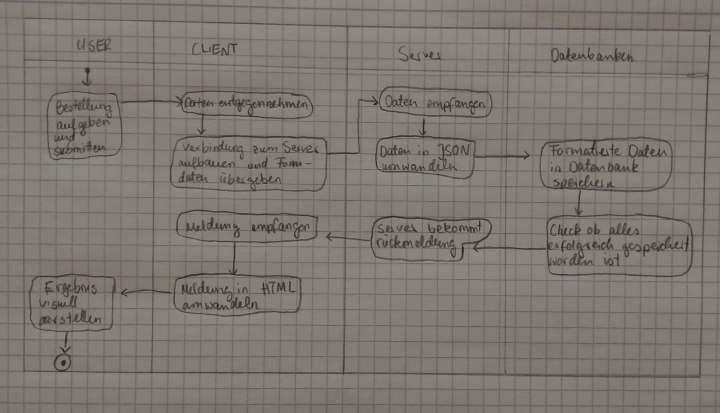 USER
CLIENT
Server
Datenbanken
Bestellung
aufgeben
und
submitten
Daten entgegennehmen
Verbindung zum Server
aufbauen und Form-
daten übergeben
Daten empfangen
Daten in JSON
umwandeln
Formatierte Daten
in Datenbank
speichern
Check ob alles
erfolgreich gespeichert
worden ist
Server bekommt
rückmeldung
Meldung empfangen
Meldung in HTML
umwandeln
Ergebnis
visuell
darstellen